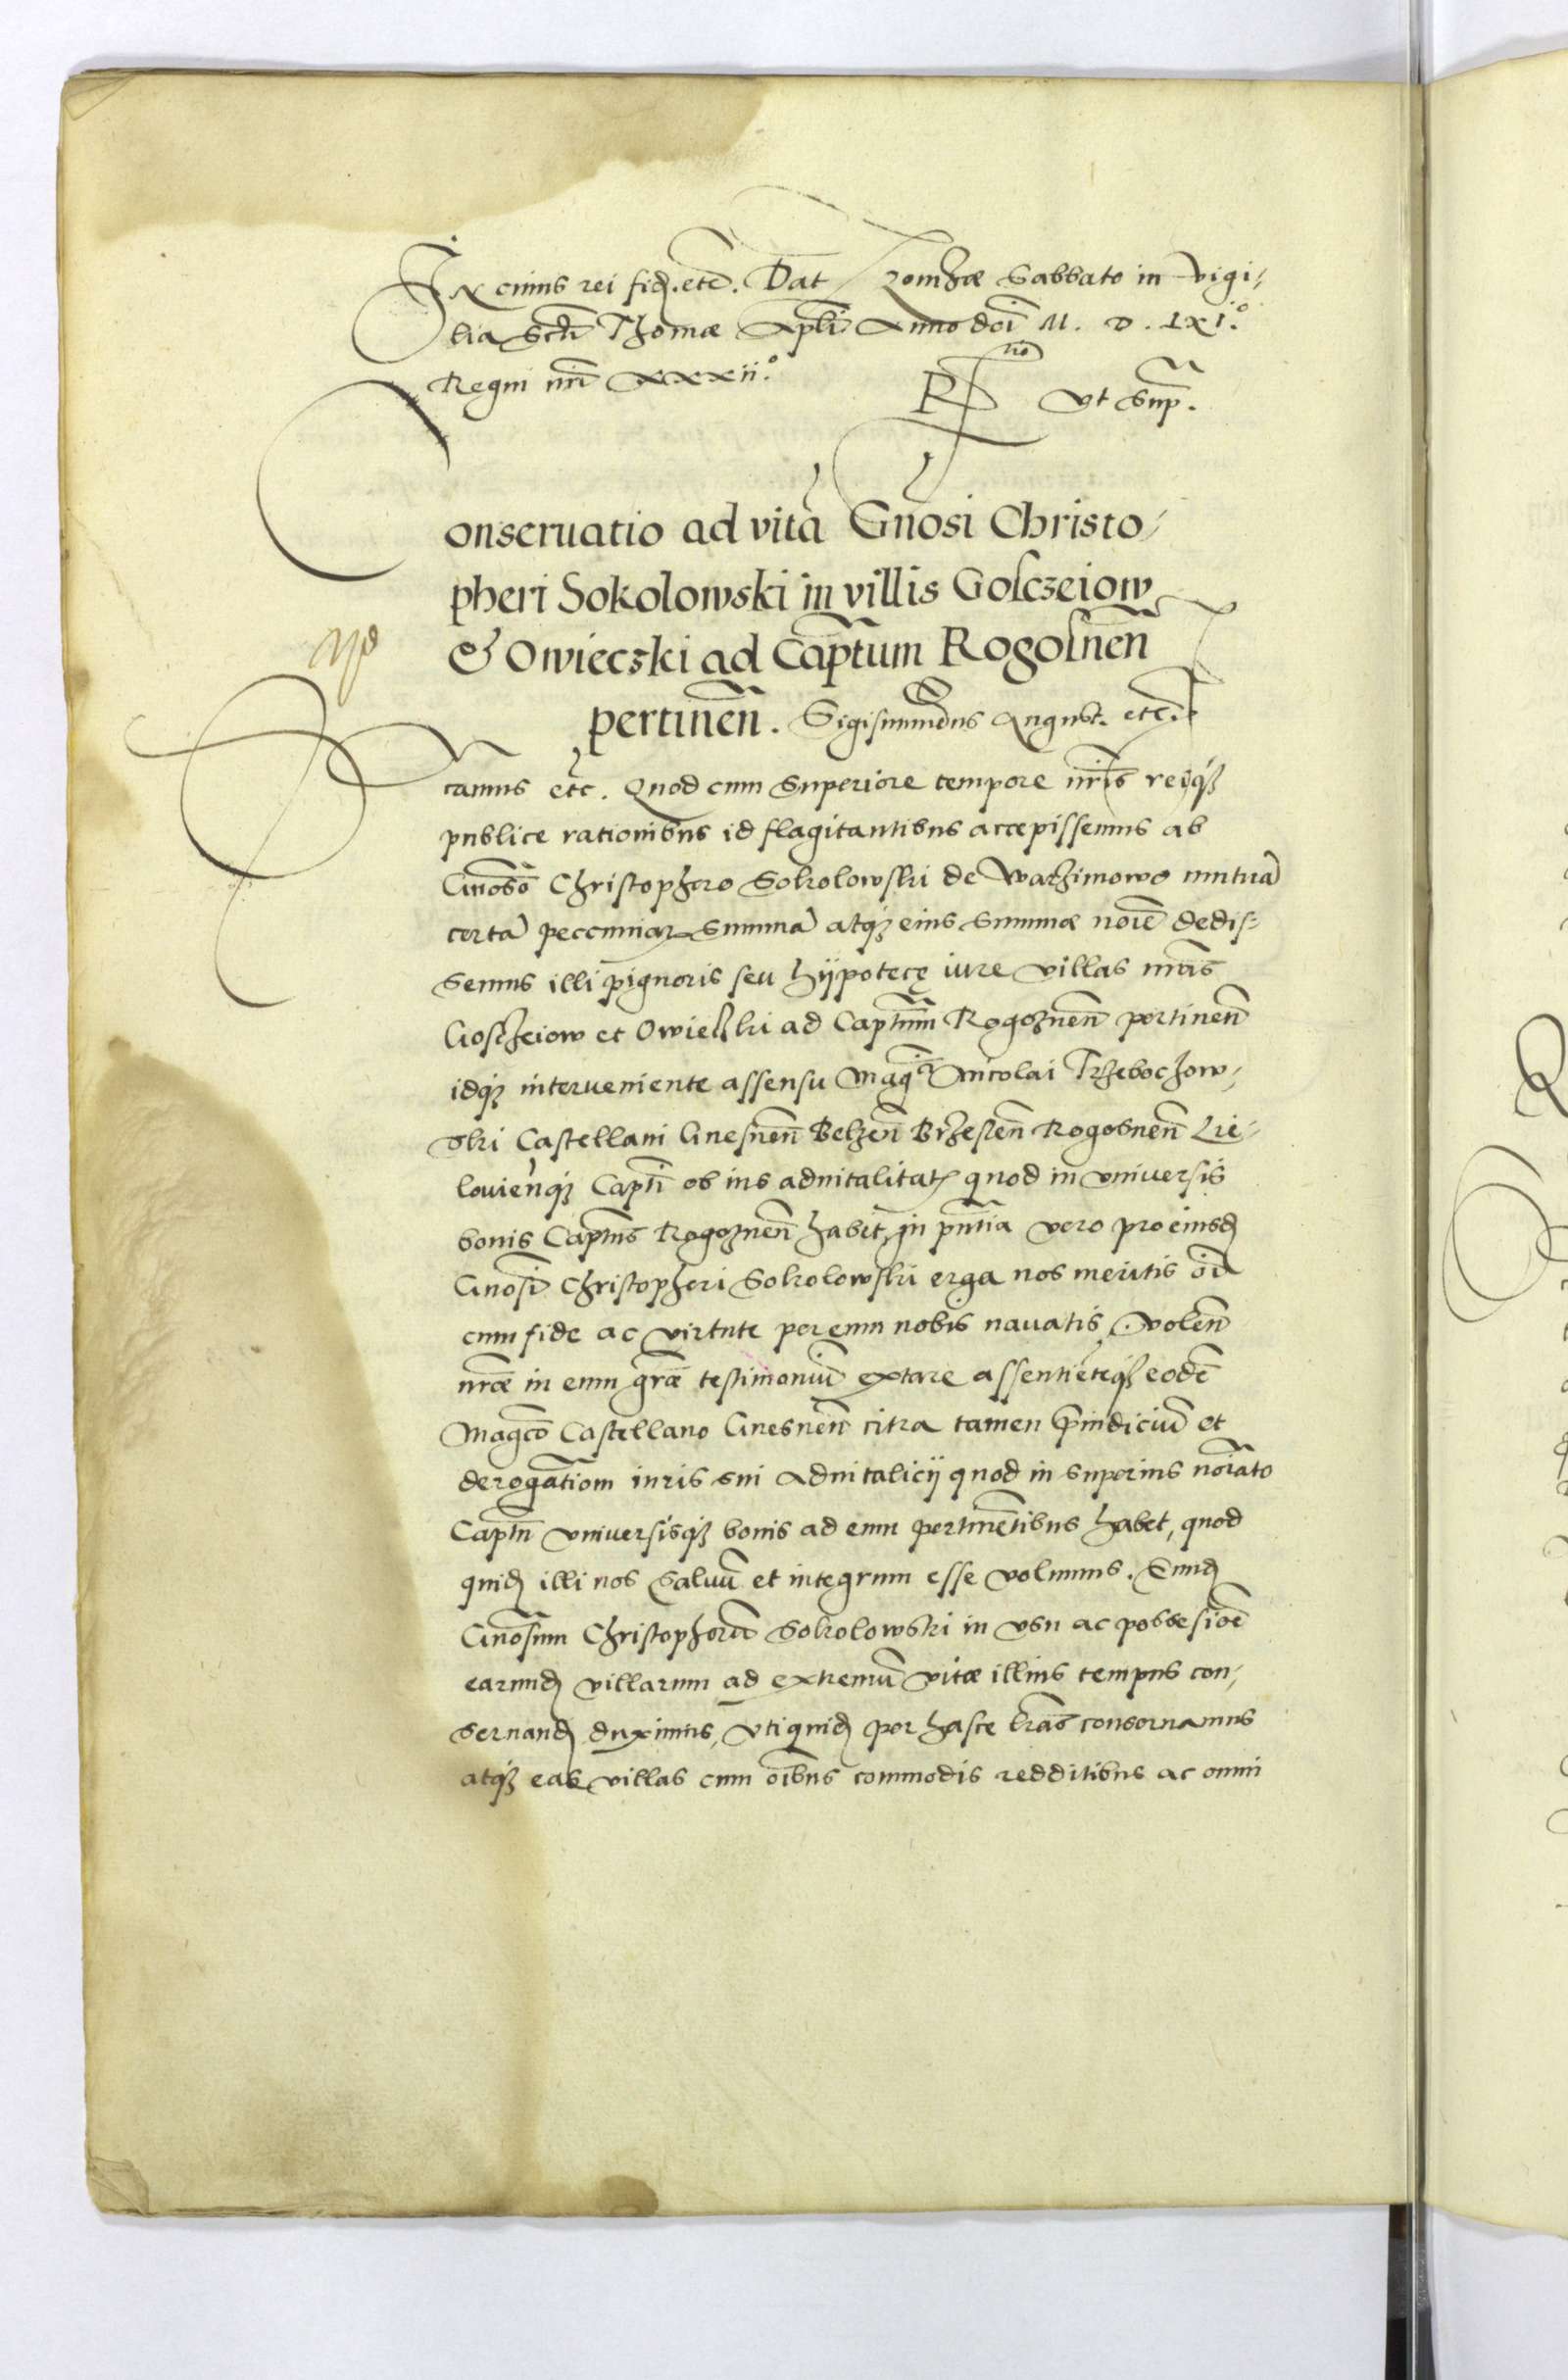 In cuius rei fid. etc. Dat Lomzae Sabbato in Vigi,
lia Scti Thomae Apli Anno doi M. D. LXI.°
Regni nri XXXii.°
Rno Vt sup.
Conseruatio ad vitã Gnosi Christo,
pheri Sokolowski in villis Golczeiow
& Owieczki ad Capt̃um Rogosneñ
pertineñ. Sigismundus August. etc.
Sig̃camus etc. Quod cum superiore tempore nris reiqz
publice rationibus id flagitantibus accepissemus ab
Gnoso Christophoro Sokolowski de Warzimowo mutuã
certã peccuniar summã atqz eius summae noie dedis,
semus illi pignoris seu hypotecę iure villas nras
Goszczeiow et Owieczki ad Captum Rogozneñ pertineñ
idqz interueniente assensu Magci Nicolai Trzebochow,
ski Castellani Gnesneñ Belzeñ Brzesteñ Rogosneñ Lie,
louieñqz Capti ob ius aduitalitat quod in vniuersis
bonis Captus Rogozneñ habet, in pntia vero pro eiusd
Gnosi Christopheri Sokolowski erga nos meritis
cum fide ac virtute per eum nobis nauatis, volen
nrae in eum grae testimoniũ extare assentiẽteqz eodẽ
Magco Castellano Gnesneñ citra tamen piudiciũ et
derogatiom iuris sui aduitalicij quod in superius noiato
Captu vniuersisqz bonis ad eum pertinẽtibus habet, quod
quid illi nos saluũ et integrum esse volumus. Eund
Gnosum Christophorũ Sokolowski in vsu ac possesioẽ
earund villarum ad extremũ vitae illius tempus con,
seruand duximus, vti quid per hasce lras conseruamus
atqz eas villas cum oibus commodis redditibus ac omni